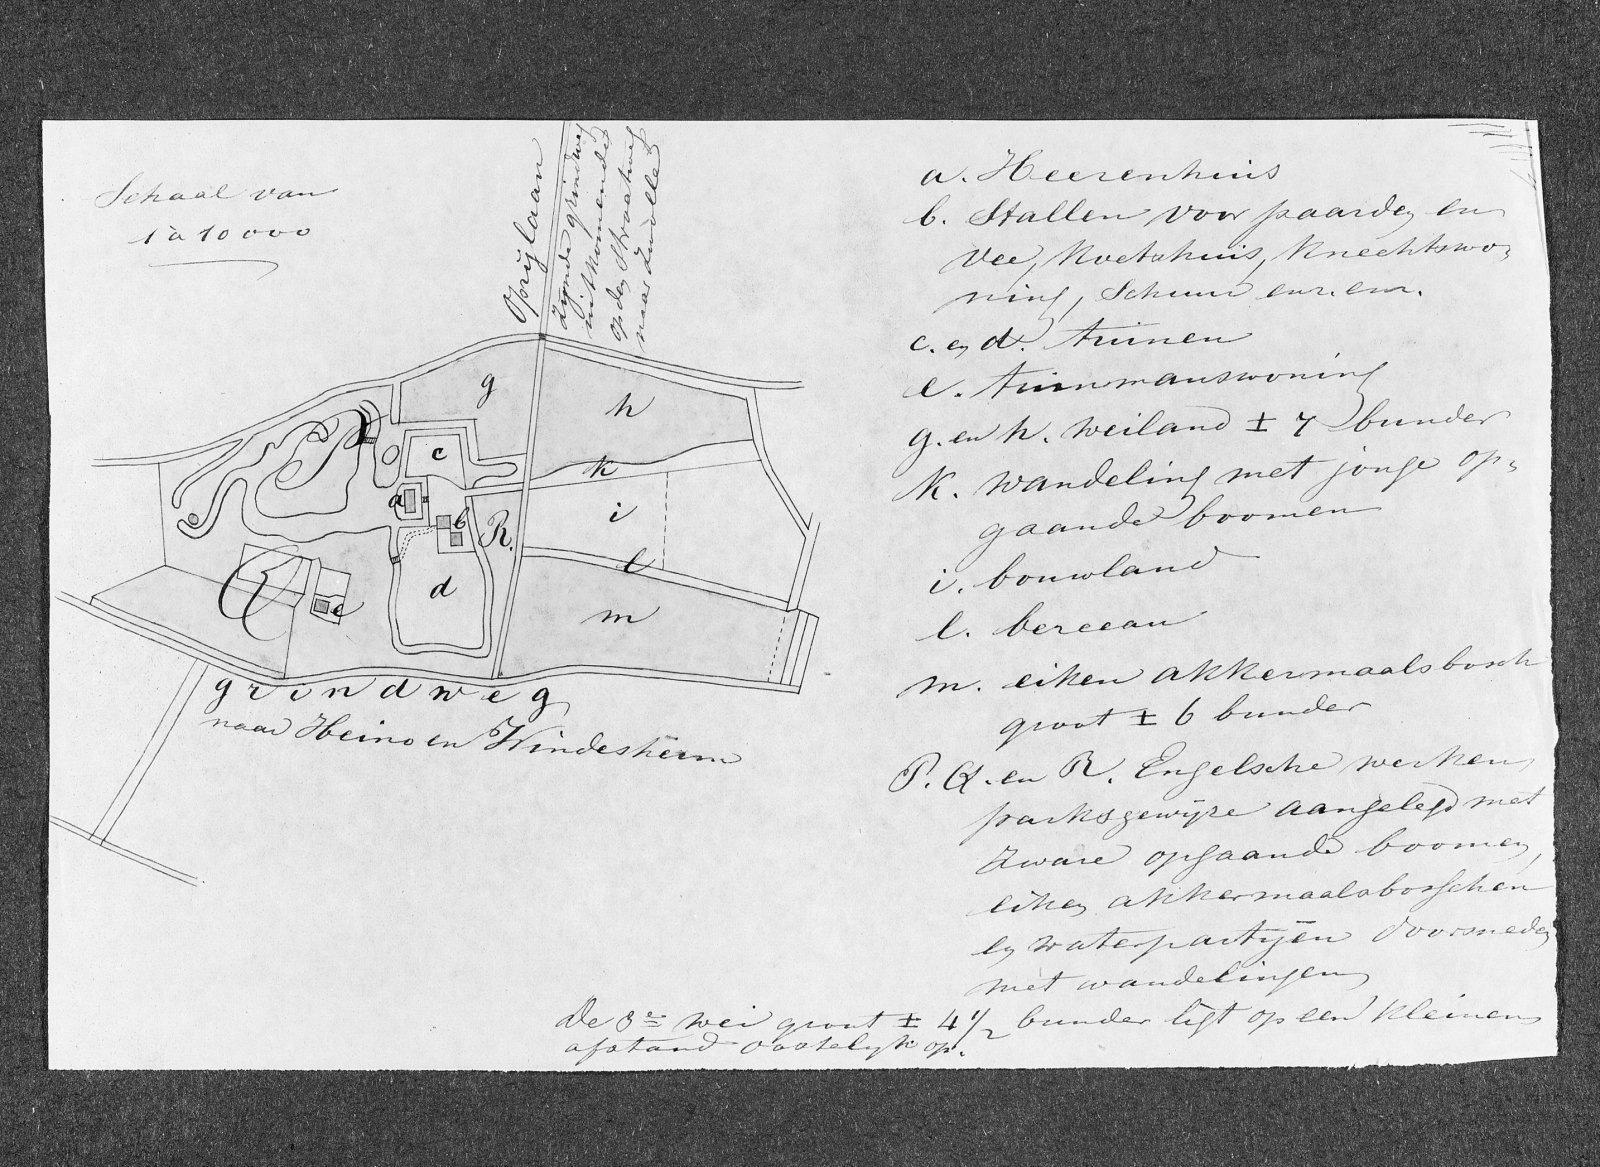 Schaal van
1 à 10000
Oprijlaan
zijnde grindweg
uitkomende
op den Straatweg
naar Zwolle
g
h
c
k
a
b
i
R.
l
d
e
Q
m
grindweg
naar Heino en Windesheim
a. Heerenhuis
b. Stallen voor paarden en
vee, Koetshuis, Knechtswo-
ning, Schuur enz. enz.
c. en d. tuinen
e. tuinmanswoning
g. en h. weiland ± 7 bunder
k. wandeling met jonge op-
gaande boomen
i. bouwland
l. berceau
m. eiken akkermaalsbosch
groot ± 6 bunder
P. Q. en R. Engelsche werken
parksgewijze aangelegd met
zware opgaande boomen,
eiken akkermaalsbosschen
en waterpartijen doorsneden
met wandelingen
De 3e wei groot ± 4 1/2 bunder ligt op een kleinen
afstand oostelijk op.